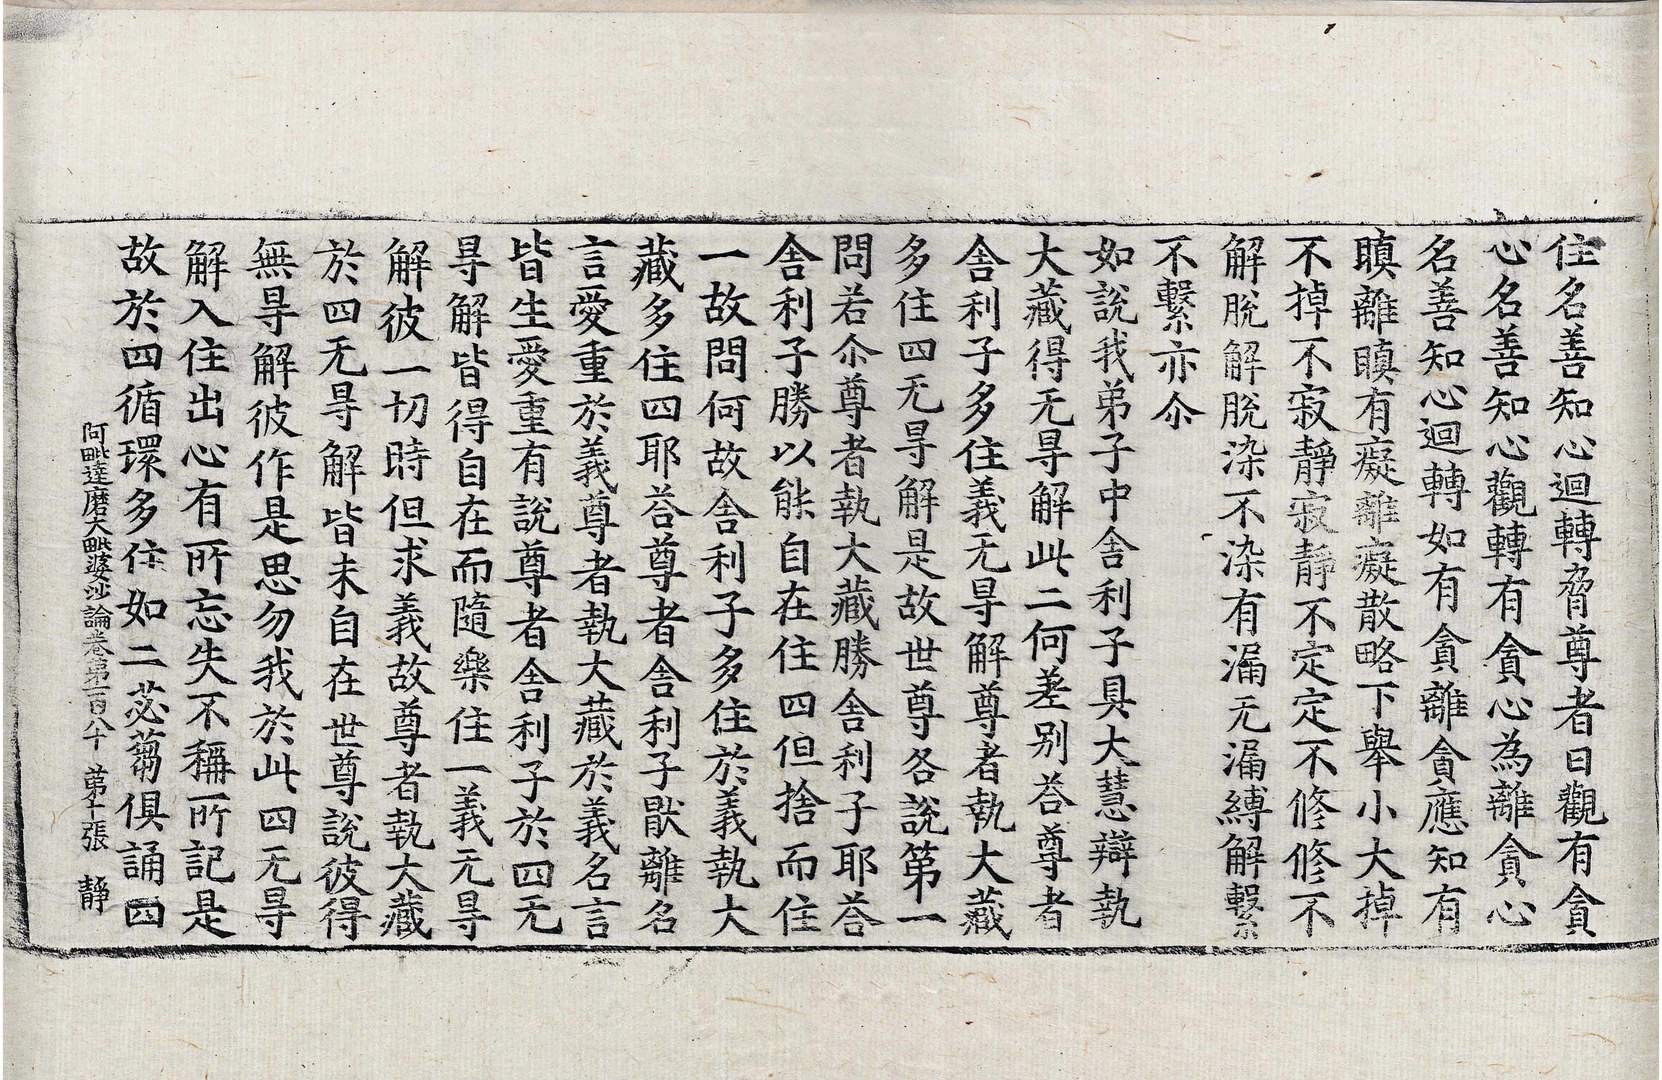 住名善知心迴轉脅尊者曰觀有貪
心名善知心觀轉有貪心為離貪心
名善知心迴轉如有貪離貪應知有
瞋離瞋有癡離癡散略下舉小大掉
不掉不寂靜寂靜不定定不修修不
解脫解脫染不染有漏无漏縛解繫
不繫亦尒
如說我弟子中舍利子具大慧辯執
大藏得无㝵解此二何差別荅尊者
舍利子多住義无㝵解尊者執大藏
多住四无㝵解是故世尊各說第一
問若尒尊者執大藏勝舍利子耶荅
舍利子勝以能自在住四但捨而住
一故問何故舍利子多住於義執大
藏多住四耶荅尊者舍利子猒離名
言愛重於義尊者執大藏於義名言
皆生愛重有說尊者舍利子於四无
㝵解皆得自在而隨樂住一義无㝵
解彼一切時但求義故尊者執大藏
於四无㝵解皆未自在世尊說彼得
無㝵解彼作是思勿我於此四无㝵
解入住出心有所忘失不稱所記是
故於四循環多住如二苾蒭俱誦四
阿毗達磨大毗婆沙論卷第一百八十 第十張 靜